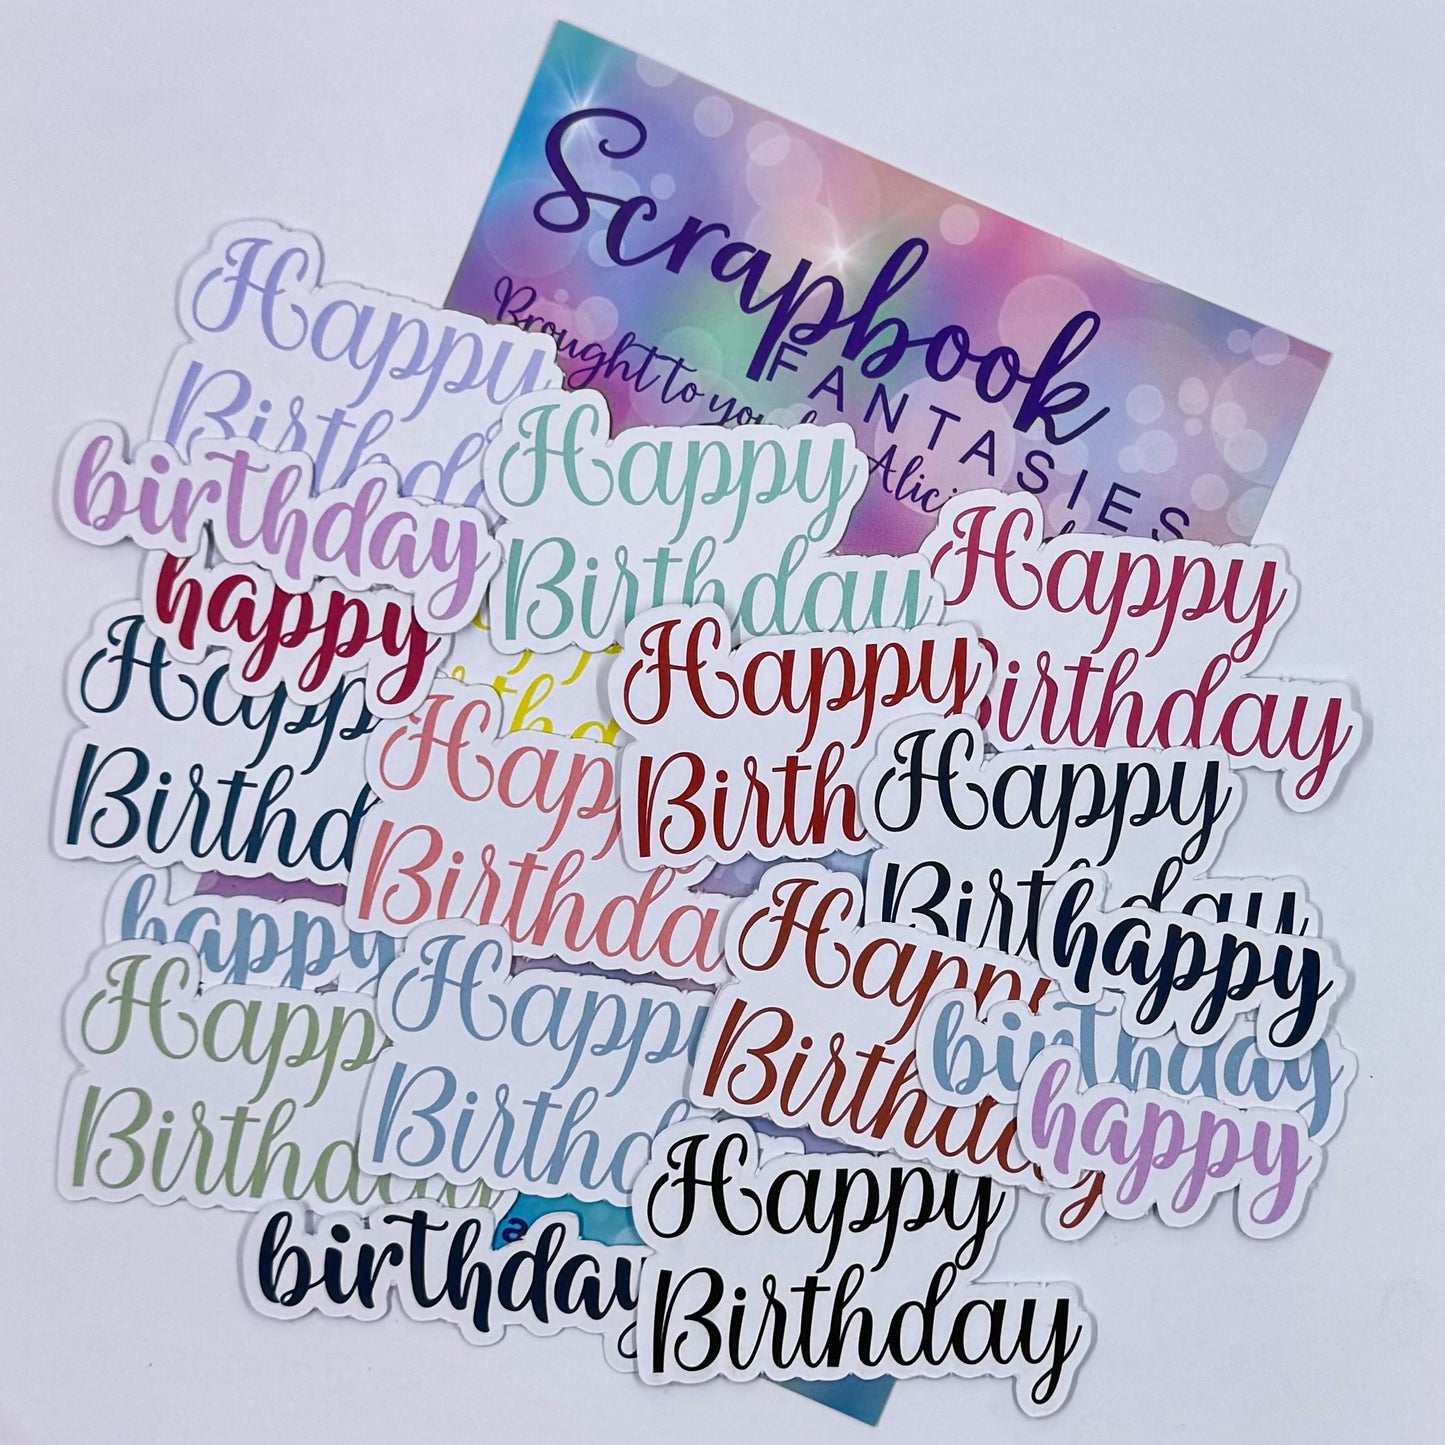 Scrapbook
FANTASIES
Brought to you by Alici
Happy
Birthday
birthday
happy
Happy
Birthday
Happy
Birthday
Happy
Birthday
Happy
Birthday
Happy
Birthday
Happy
Birthday
happy
happy
Happy
Birthday
birthday
happy
Happy
Birthday
Happy
Birthday
birthday
Happy
Birthday